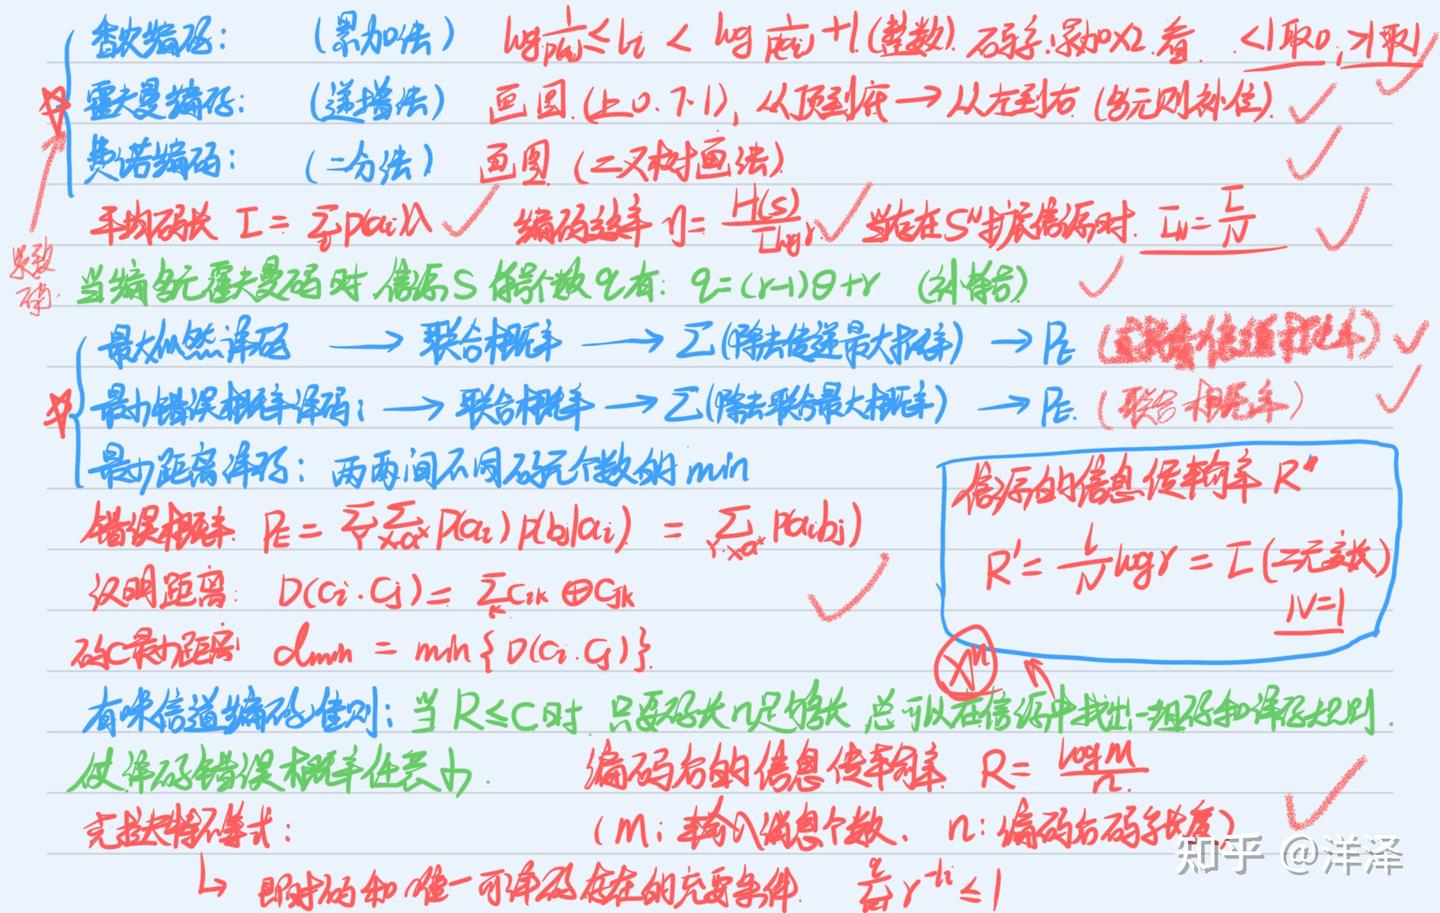 香农编码: (累加法) log 1/p(ai) ≤ li < log 1/p(ai) +1 (整数) 码字:累加×2.看 <1取0, >1取1
霍夫曼编码: (递增法) 画图.(上0.下1), 从顶到底→从左到右 (多元则补位)
费诺编码: (二分法) 画图 (二叉树画法)
平均码长 L = Σ p(ai)λi 编码效率 η = H(S)/(L log r) 当右在S^N扩展信源时. L_N = L/N
紧致码.
当编多元霍夫曼码时 信源S 符号个数q有: q=(r-1)θ+r
最大似然译码 → 联合概率 → Σ(除去传递最大概率) → PE
最小错误概率译码: → 联合概率 → Σ(除去联合最大概率) → PE. (联合概率)
最小距离译码: 两两间不同码元个数的min
信源的信息传输率 R'
R' = L/N log r = L (二元变长)
N=1
错误概率 PE = Σ_Y Σ_{X-a*} P(ai)p(bj|ai) = Σ_{Y.X-a*} P(aibj)
汉明距离: D(Ci.Cj) = Σ_k Cik ⊕ Cjk
码C最小距离 dmin = min{D(Ci.Cj)}.
X^n
有噪信道编码准则: 当R≤C时 只要码长n足够长 总可以在信源中找出一组码和译码规则.
使译码错误概率任意小. 编码后的信息传输率 R = log M / n
克拉夫特不等式: (M: 输入消息个数. n: 编码后码字长度)
↳ 即时码和唯一可译码存在的充要条件. Σ r^-li ≤ 1
知乎 @洋泽